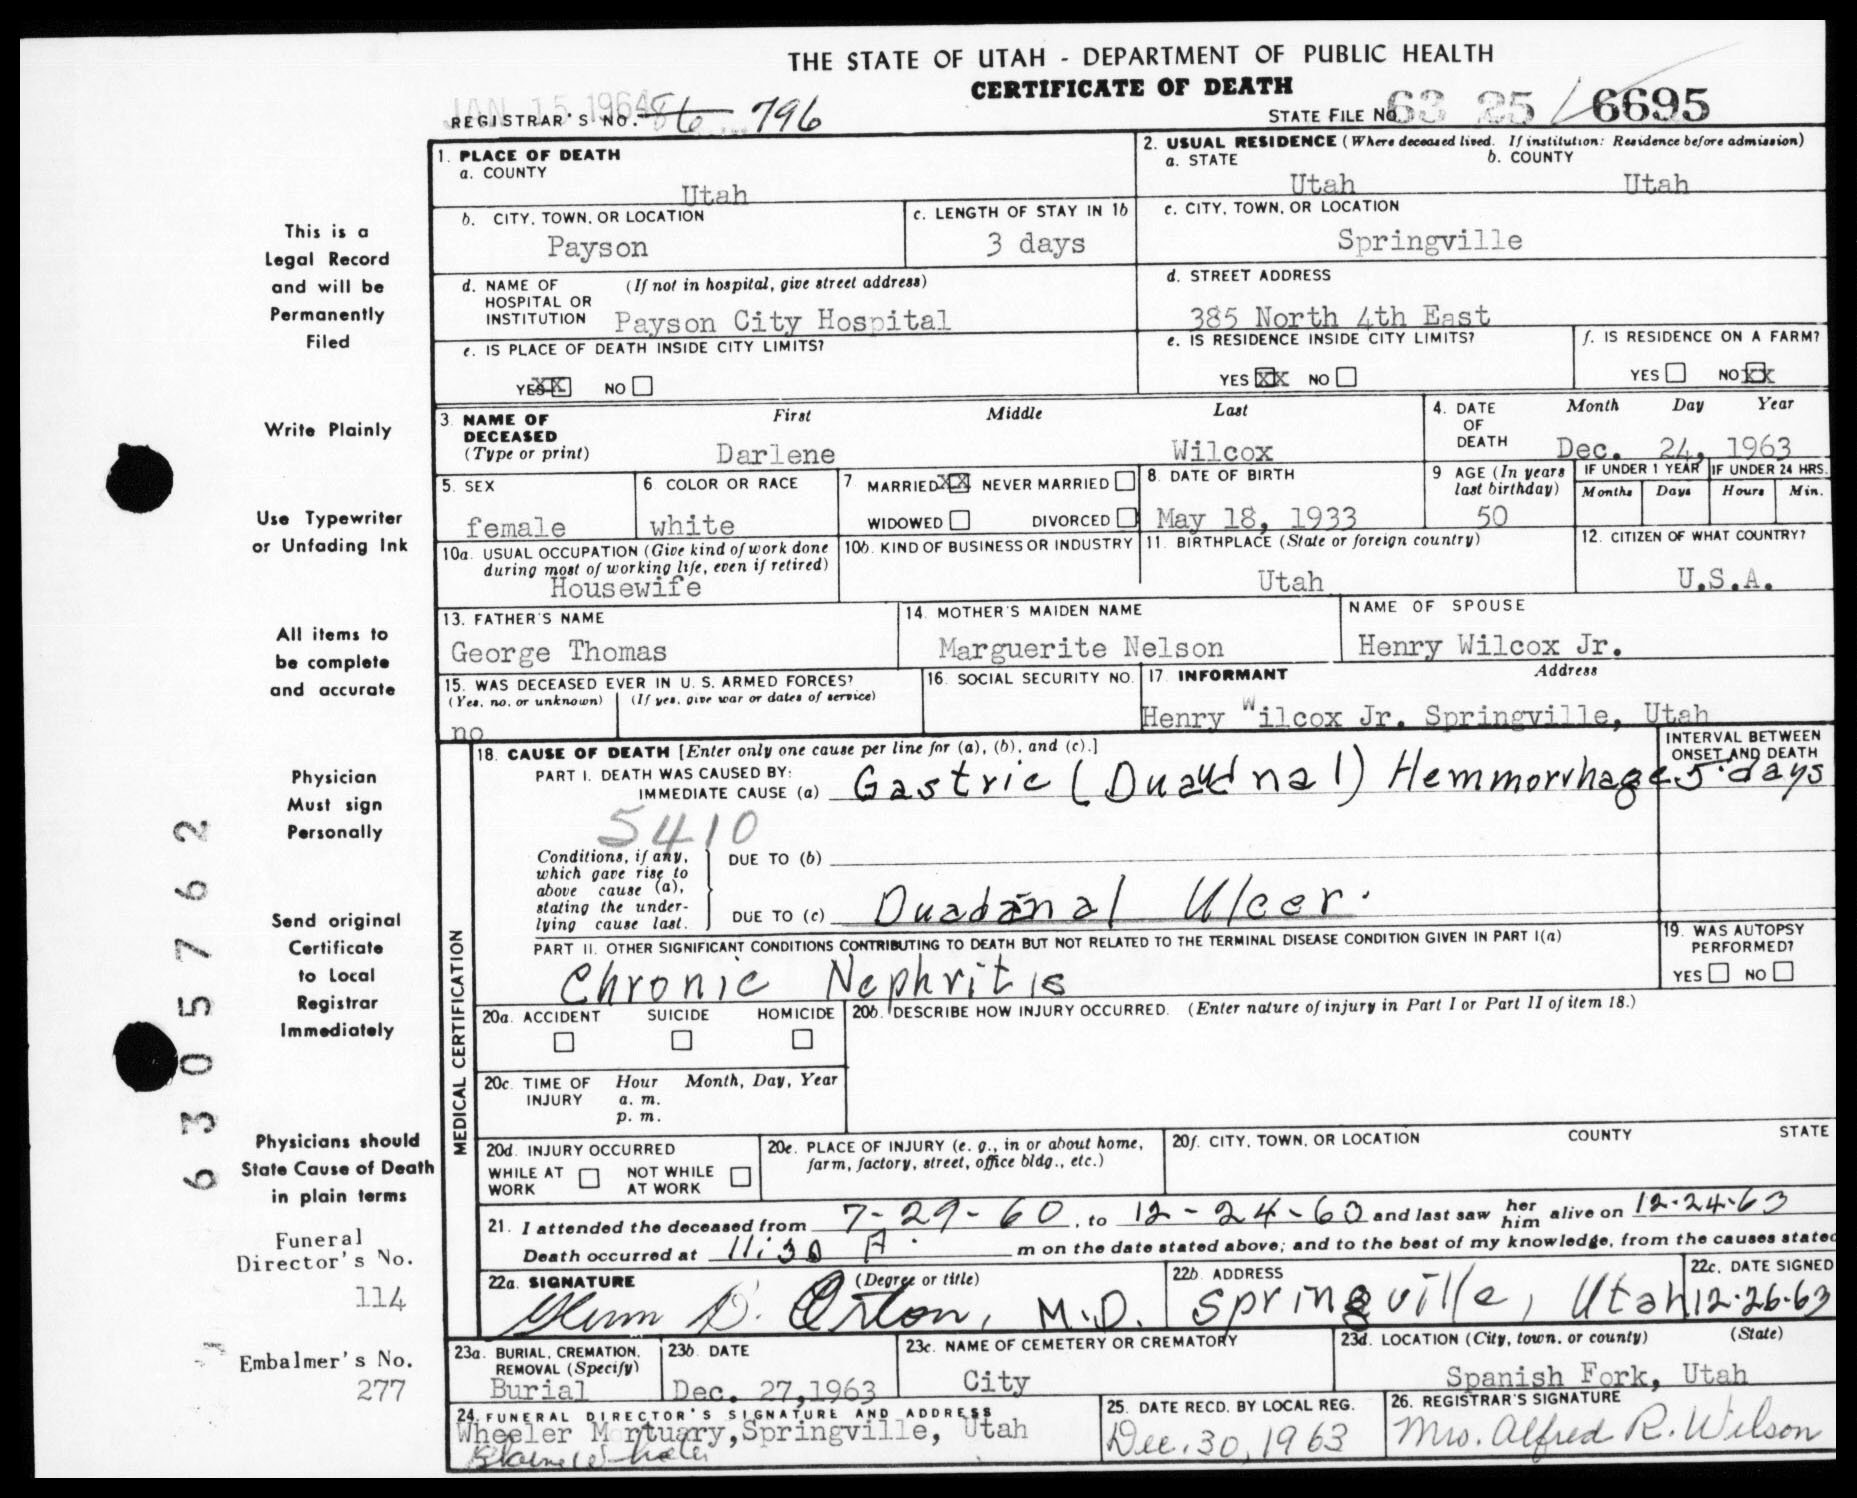 THE STATE OF UTAH - DEPARTMENT OF PUBLIC HEALTH
CERTIFICATE OF DEATH
JAN 15 1964
REGISTRAR'S NO. 86 796
STATE FILE NO. 63 25 6695
1. PLACE OF DEATH
a. COUNTY
Utah
2. USUAL RESIDENCE (Where deceased lived. If institution: Residence before admission)
a. STATE b. COUNTY
Utah Utah
b. CITY, TOWN, OR LOCATION
Payson
c. LENGTH OF STAY IN 1b
3 days
c. CITY, TOWN, OR LOCATION
Springville
d. NAME OF (If not in hospital, give street address)
HOSPITAL OR
INSTITUTION Payson City Hospital
d. STREET ADDRESS
385 North 4th East
e. IS PLACE OF DEATH INSIDE CITY LIMITS?
YES XX NO
e. IS RESIDENCE INSIDE CITY LIMITS?
YES XX NO
f. IS RESIDENCE ON A FARM?
YES NO XX
3 NAME OF DECEASED
(Type or print)
First Middle Last
Darlene Wilcox
4. DATE OF DEATH
Month Day Year
Dec. 24, 1963
5. SEX
female
6 COLOR OR RACE
white
7 MARRIED XX NEVER MARRIED
WIDOWED DIVORCED
8. DATE OF BIRTH
May 18, 1933
9 AGE (In years last birthday)
50
IF UNDER 1 YEAR
Months Days
IF UNDER 24 HRS.
Hours Min.
10a. USUAL OCCUPATION (Give kind of work done
during most of working life, even if retired)
Housewife
10b. KIND OF BUSINESS OR INDUSTRY
11. BIRTHPLACE (State or foreign country)
Utah
12. CITIZEN OF WHAT COUNTRY?
U.S.A.
13. FATHER'S NAME
George Thomas
14. MOTHER'S MAIDEN NAME
Marguerite Nelson
NAME OF SPOUSE
Henry Wilcox Jr.
15. WAS DECEASED EVER IN U. S. ARMED FORCES?
(Yes, no, or unknown) (If yes, give war or dates of service)
no
16. SOCIAL SECURITY NO.
17. INFORMANT Address
Henry Wilcox Jr. Springville, Utah
MEDICAL CERTIFICATION
18. CAUSE OF DEATH [Enter only one cause per line for (a), (b), and (c).]
INTERVAL BETWEEN
ONSET AND DEATH
PART I. DEATH WAS CAUSED BY:
IMMEDIATE CAUSE (a) Gastric ( ) Hemmorrhage 5 days
5410
Conditions, if any,
which gave rise to
above cause (a),
stating the under-
lying cause last.
DUE TO (b)
DUE TO (c) Duadanal Ulcer.
PART II. OTHER SIGNIFICANT CONDITIONS CONTRIBUTING TO DEATH BUT NOT RELATED TO THE TERMINAL DISEASE CONDITION GIVEN IN PART I(a)
Chronic Nephritis
19. WAS AUTOPSY
PERFORMED?
YES NO
20a. ACCIDENT SUICIDE HOMICIDE
20b. DESCRIBE HOW INJURY OCCURRED. (Enter nature of injury in Part I or Part II of item 18.)
20c. TIME OF INJURY
Hour Month, Day, Year
a. m.
p. m.
20d. INJURY OCCURRED
WHILE AT WORK NOT WHILE AT WORK
20e. PLACE OF INJURY (e. g., in or about home,
farm, factory, street, office bldg., etc.)
20f. CITY, TOWN, OR LOCATION COUNTY STATE
21. I attended the deceased from 7-29-60, to 12-24-60 and last saw her him alive on 12-24-63
Death occurred at 11:30 A. m on the date stated above; and to the best of my knowledge, from the causes stated
22a. SIGNATURE (Degree or title)
Glenn D. Orton, M.D.
22b. ADDRESS
Springville, Utah
22c. DATE SIGNED
12-26-63
23a. BURIAL, CREMATION,
REMOVAL (Specify)
Burial
23b. DATE
Dec. 27,1963
23c. NAME OF CEMETERY OR CREMATORY
City
23d. LOCATION (City, town, or county) (State)
Spanish Fork, Utah
24. FUNERAL DIRECTOR'S SIGNATURE AND ADDRESS
Wheeler Mortuary,Springville, Utah
25. DATE RECD. BY LOCAL REG.
Dec. 30, 1963
26. REGISTRAR'S SIGNATURE
Mrs. Alfred R. Wilson
This is a
Legal Record
and will be
Permanently
Filed
Write Plainly
Use Typewriter
or Unfading Ink
All items to
be complete
and accurate
Physician
Must sign
Personally
Send original
Certificate
to Local
Registrar
Immediately
Physicians should
State Cause of Death
in plain terms
Funeral
Director's No.
114
Embalmer's No.
277
6305762